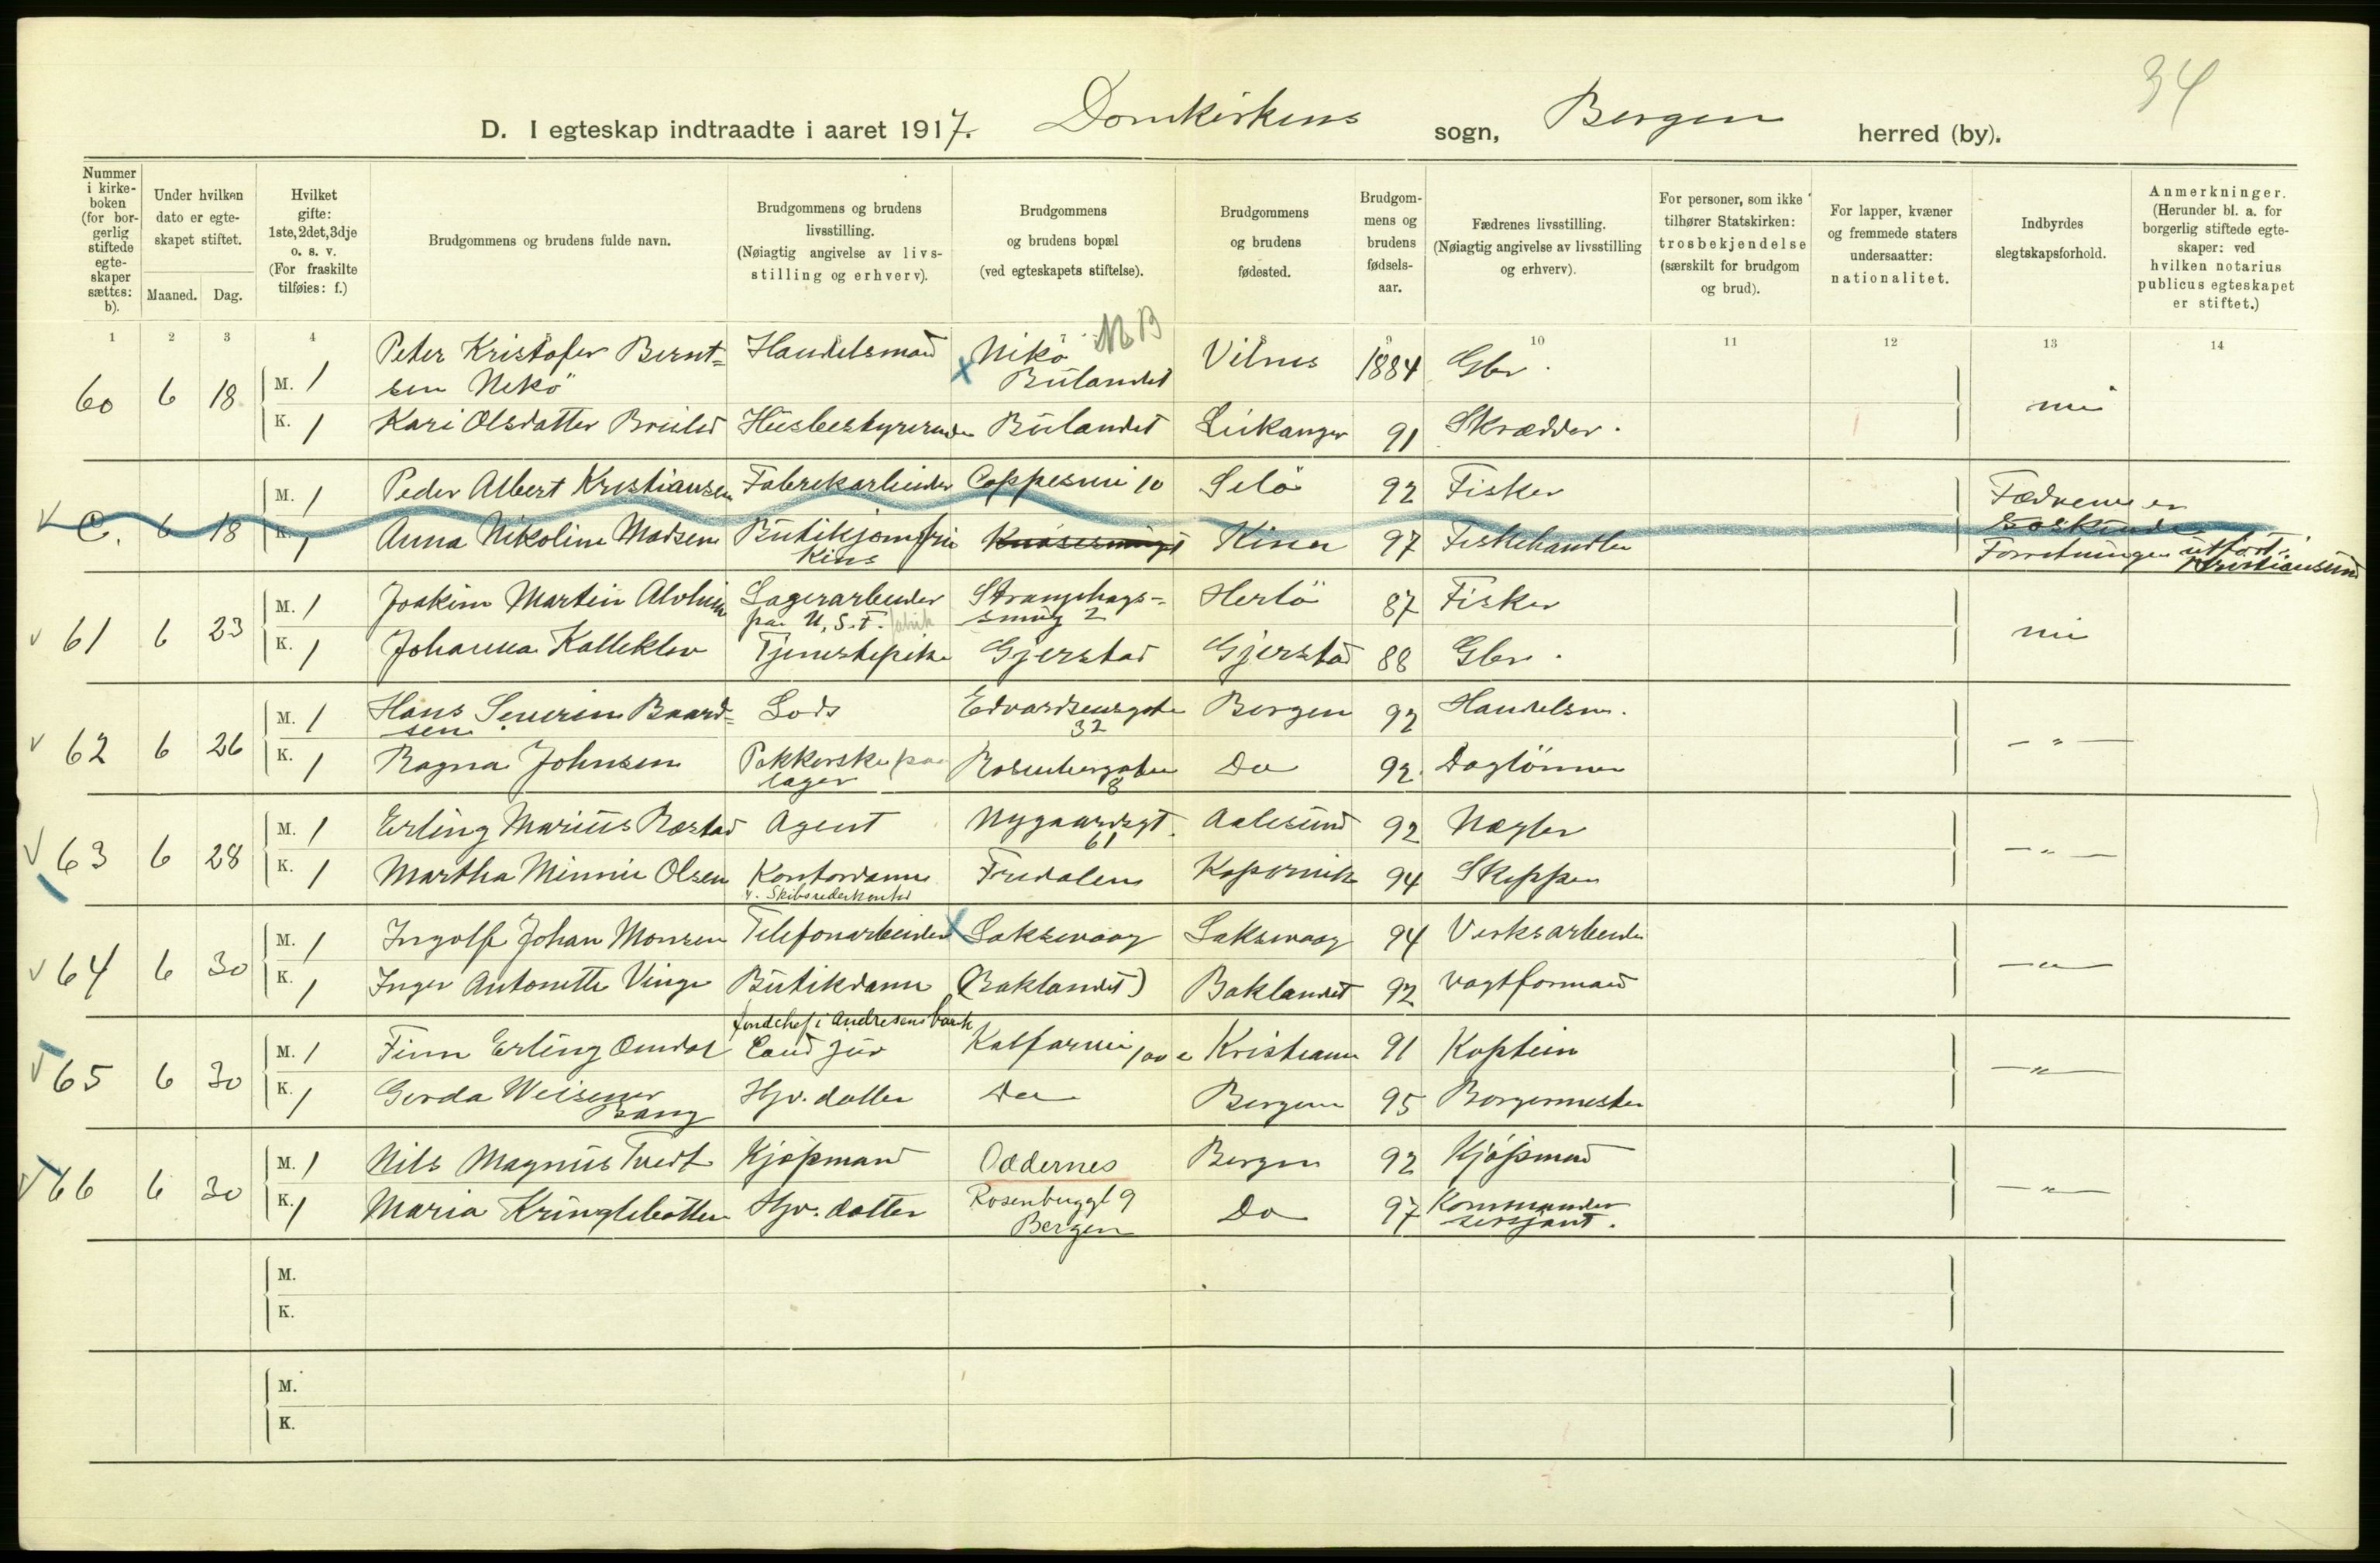 34
D. I egteskap indtraadte i aaret 1917. Domkirkens sogn, Bergen herred (by).
Nummer i kirkeboken (for borgerlig stiftede egteskaper sættes: b).
Under hvilken dato er egteskapet stiftet.
Maaned. Dag.
Hvilket gifte: 1ste, 2det, 3dje o. s. v. (For fraskilte tilføies: f.)
Brudgommens og brudens fulde navn.
Brudgommens og brudens livsstilling. (Nøiagtig angivelse av livsstilling og erhverv).
Brudgommens og brudens bopæl (ved egteskapets stiftelse).
Brudgommens og brudens fødested.
Brudgommens og brudens fødselsaar.
Fædrenes livsstilling. (Nøiagtig angivelse av livsstilling og erhverv).
For personer, som ikke tilhører Statskirken: trosbekjendelse (særskilt for brudgom og brud).
For lapper, kvæner og fremmede staters undersaatter: nationalitet.
Indbyrdes slegtskapsforhold.
Anmerkninger. (Herunder bl. a. for borgerlig stiftede egteskaper: ved hvilken notarius publicus egteskapet er stiftet.)
1 2 3 4 9 10 11 12 13 14
60 6 18 M. 1 Peter Kristofer Berntsen Nekö Handelsmand Nikö Bulandet NB Vilnes 1884 Gbr.
K. 1 Kari Olsdatter Husbestyrerinde Bulandet Leikanger 91 Skrædder. nei
C. 6 18 M. 1 Peder Albert Kristiansen Fabrikarbeider Coppesmi 10 Selö 92 Fisker
K. 1 Anna Nikoline Madsen Butikjomfru Kins Kinn 97 Fiskehandler
Fædrene er Søskende
Forretningen utført i Kristiansund
61 6 23 M. 1 Joakim Martin Lagerarbeider paa U.S.F. fabrik Strangehagssmug 2 Herlö 87 Fisker
K. 1 Johanna Kalleklev Tjenestepike Gjerstad Gjerstad 88 Gbr. nei
62 6 26 M. 1 Hans Severin Baardsen Lods Edvardsensgate 32 Bergen 92 Handelsm.
K. 1 Ragna Johnsen Pakkerske paa lager Rosenbergsgaten 8 Do 92 Daglönner — " —
63 6 28 M. 1 Erling Marius Rastad Agent Nygaardsgt. 61 Aalesund 92 Nægler
K. 1 Martha Minnie Olsen Kontordame v. Skibsrederkontor Fredalen Kopervik 94 Skipper — " —
64 6 30 M. 1 Ingolf Johan Monsen Telefonarbeider Laksevaag Laksevaag 94 Verksarbeider
K. 1 Inger Antonette Vinge Butikdame (Baklandet) Baklandet 92 Vagtformand — " —
65 6 30 M. 1 Finn Erling Omdal fondchef i Andresens bank Cand jur Kalfarvei 100 c Kristiania 91 Kaptein
K. 1 Gerda Weisener Bang Hjv. datter Do Bergen 95 Borgermester — " —
66 6 30 M. 1 Nils Magnus Tvedt Kjøpmand Oddernes Bergen 92 Kjøpmand
K. 1 Maria Kringlebotten Hjv. datter Rosenberggt 9 Bergen Do 97 Kommandersersjant. — " —
M.
K.
M.
K.